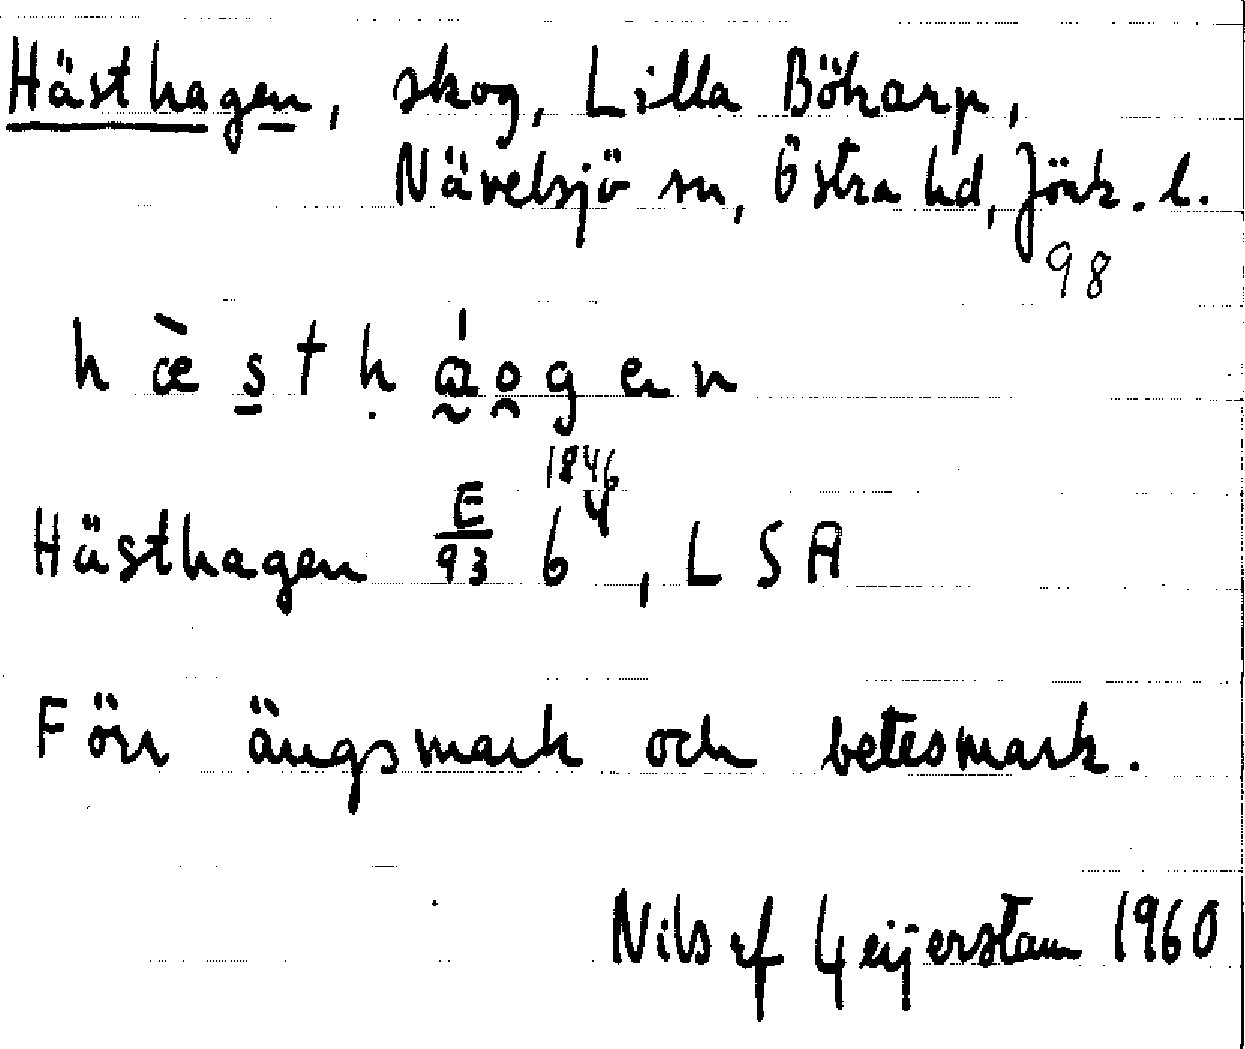 Hästhagen, skog, Lilla Böharp,
Nävelsjö sn, Östra hd, Jönk. l.
98
h æ̀ s̱ t ḥ á̰ o̯ g e n
1846
Hästhagen E/93 6 4, LSA
Förr ängsmark och betesmark.
Nils af Geijerstam 1960